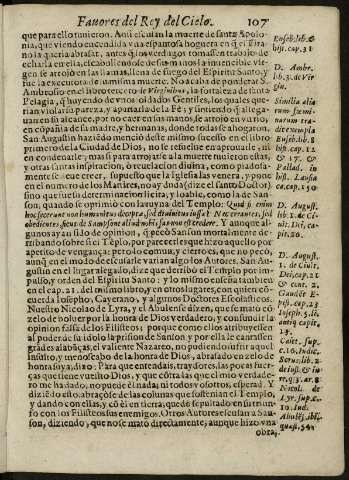 Fauores del Rey del Cielo. 107
que para ello tuuieron. Assi escusan la muerte de santa Apolo-
nia, que viendo encendida vna espantosa hoguera en que el Tira-
no la queria abrasar, antes q̃ los verdugos tomassen trabajo de
echarla en ella, escabullendose de sus manos la inuencible vir-
gen se arrojò en las llamas, llena de fuego del Espiritu Santo, y
fue la executora de su misma muerte. No acaba de ponderar S.
Ambrosio en el libro tercero de Virginibus, la fortaleza de santa
Pelagia, q̃ huyendo de vnos soldados Gentiles, los quales que-
rian violar su pureza, y apartarla de la Fè; y sintiendo q̃ allega-
uan en su alcance, por no caer en sus manos, se arrojò en vn rio
en cõpañia de su madre, y hermanas, donde todas se ahogaron.
San Augustin haziẽdo mencion deste mismo sucesso en el libro
primero de la Ciudad de Dios, no se resuelue en aprouarle, ni
en condenarle; mas si para arrojarse a la muerte tuuieron esta,
y otras santas inspiracion, ò reuelacion diuina, como piadosa-
mente se deue creer, supuesto que la Iglesia las venera, y pone
en el numero de los Martires, no ay duda (dize el santo Doctor)
sino que fue su determinacion licita, y loable, como la de San-
son, quando se oprimiò con la ruyna del Templo: Quid si enim
hoc fecerunt non humanitus deceptæ, sed diuinitus iussæ? Nec errantes, sed
obedientes, sicut de Sampsone aliud nobis fas non est credere. Y aunque al-
gunos ay sido de opinion, q̃ pecò Sanson mortalmente de-
rribando sobre si el Tẽplo, por parecerles que hizo aquello por
apetito de vengança: pero lo comun, y cierto es, que no pecò,
aunq̃ en el modo de escusarle varian algo los Autores. San Au-
gustin en el lugar alegado, dize que derribò el Templo por im-
pulso, y orden del Espiritu Santo: y lo mismo enseña tambien
en el cap. 21. del mismo libro, y en otros lugares, con quien cõ-
cuerda Iosepho, Cayetano, y algunos Doctores Escolasticos.
Nuestro Nicolao de Lyra, y el Abulense dizen, que se matò cõ
zelo de boluer por la honra de Dios verdadero, y confundir la
opinion falsa de los Filisteos, porque como ellos atribuyessen
al poder de su idolo la prision de Sanson, y por ella le cantassen
grãdes alabãças, el valiente Nazareo, no pudiendo sufrir aquel
insulto, y menoscabo de la honra de Dios, abrasado en zelo de
honra suya, dixo: Para que entendais, traydores, las pocas fuer-
ças que tiene vuestro Dios, y que cõtra las que el mio verdade-
ro me ha dado, no puede èl nada, ni todos vosotros, esperad. Y
diziẽdo esto, abraçose de las colunas que sostenian el Templo,
y dando con ellas, y cõ èl en tierra, quedò sepultado en su triun-
fo con los Filisteos sus enemigos. Otros Autores escusan a San-
son, diziendo, que no se matò directamente, aunque hizo vna
obra,
Euseb. lib. 8
hist. cap. 31
D. Ambr.
lib. 3. de Vir
gin.
Similia alia
rum fœmi-
narum tra-
dit exempla
Euseb. lib. 8
hist. cap. 12
& 17. &
Pallad. in
hist. Lausa
ca, cap. 150
D. August.
lib. 1. de Ci-
uit. Dei, ca-
pit. 26.
D. August.
1. de Ciuit.
Dei, cap. 21
Ioseph. 5. li.
antiq. capit.
Caiet. sup.